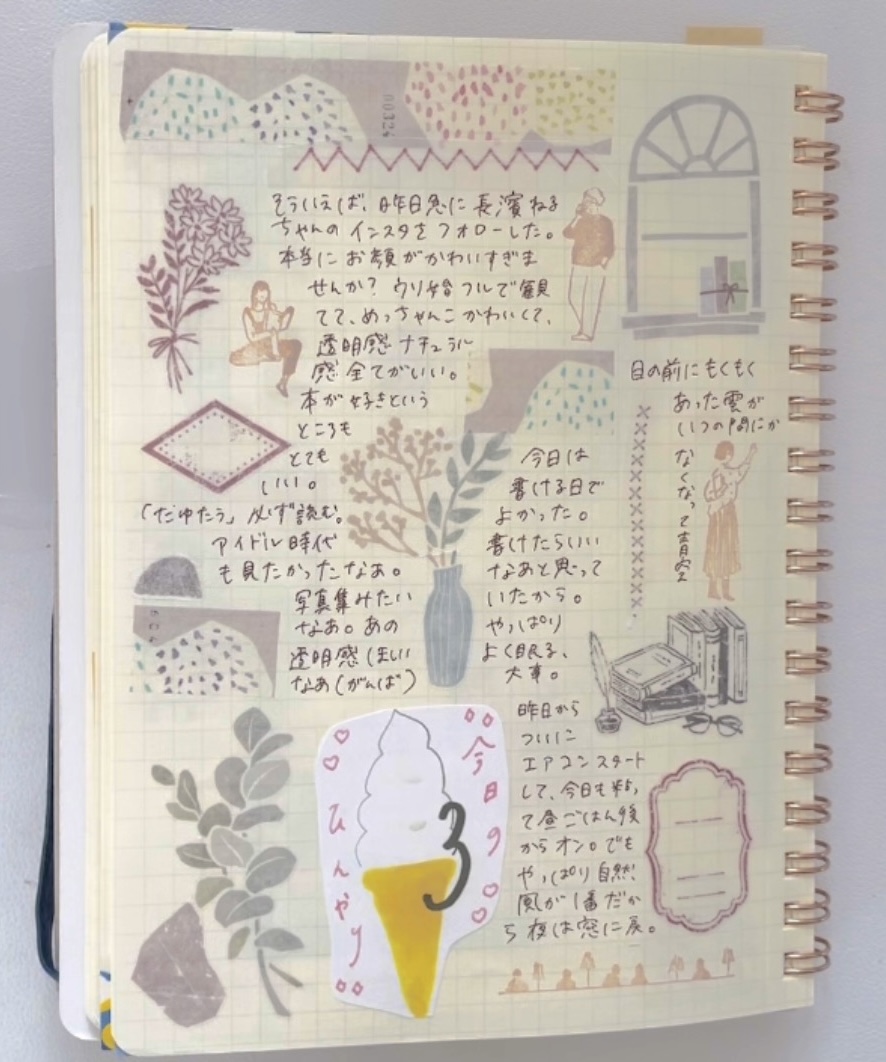 00324
そういえば、昨日急に長濱ねる
ちゃんのインスタをフォローした。
本当にお顔がかわいすぎま
せんか？ ウリ始フルで観
てて、めっちゃんこかわいくて、
透明感 ナチュラル
感 全てがいい。
本が好きという
ところも
とても
いい。
「たゆたう」必ず読む。
アイドル時代
も見たかったなあ。
写真集みたい
なあ。あの
透明感ほしい
なあ(がんば)
目の前にもくもく
あった雲が
いつの間にか
なくなって青空
今日は
書ける日で
よかった。
書けたらいい
なあと思って
いたから。
やっぱり
よく眠る、
大事。
昨日から
ついに
エアコンスタート
して、今日も
て昼ごはん後
からオン。でも
やっぱり自然
風が1番だか
ら夜は窓に戻。
今日の
ひんやり
3